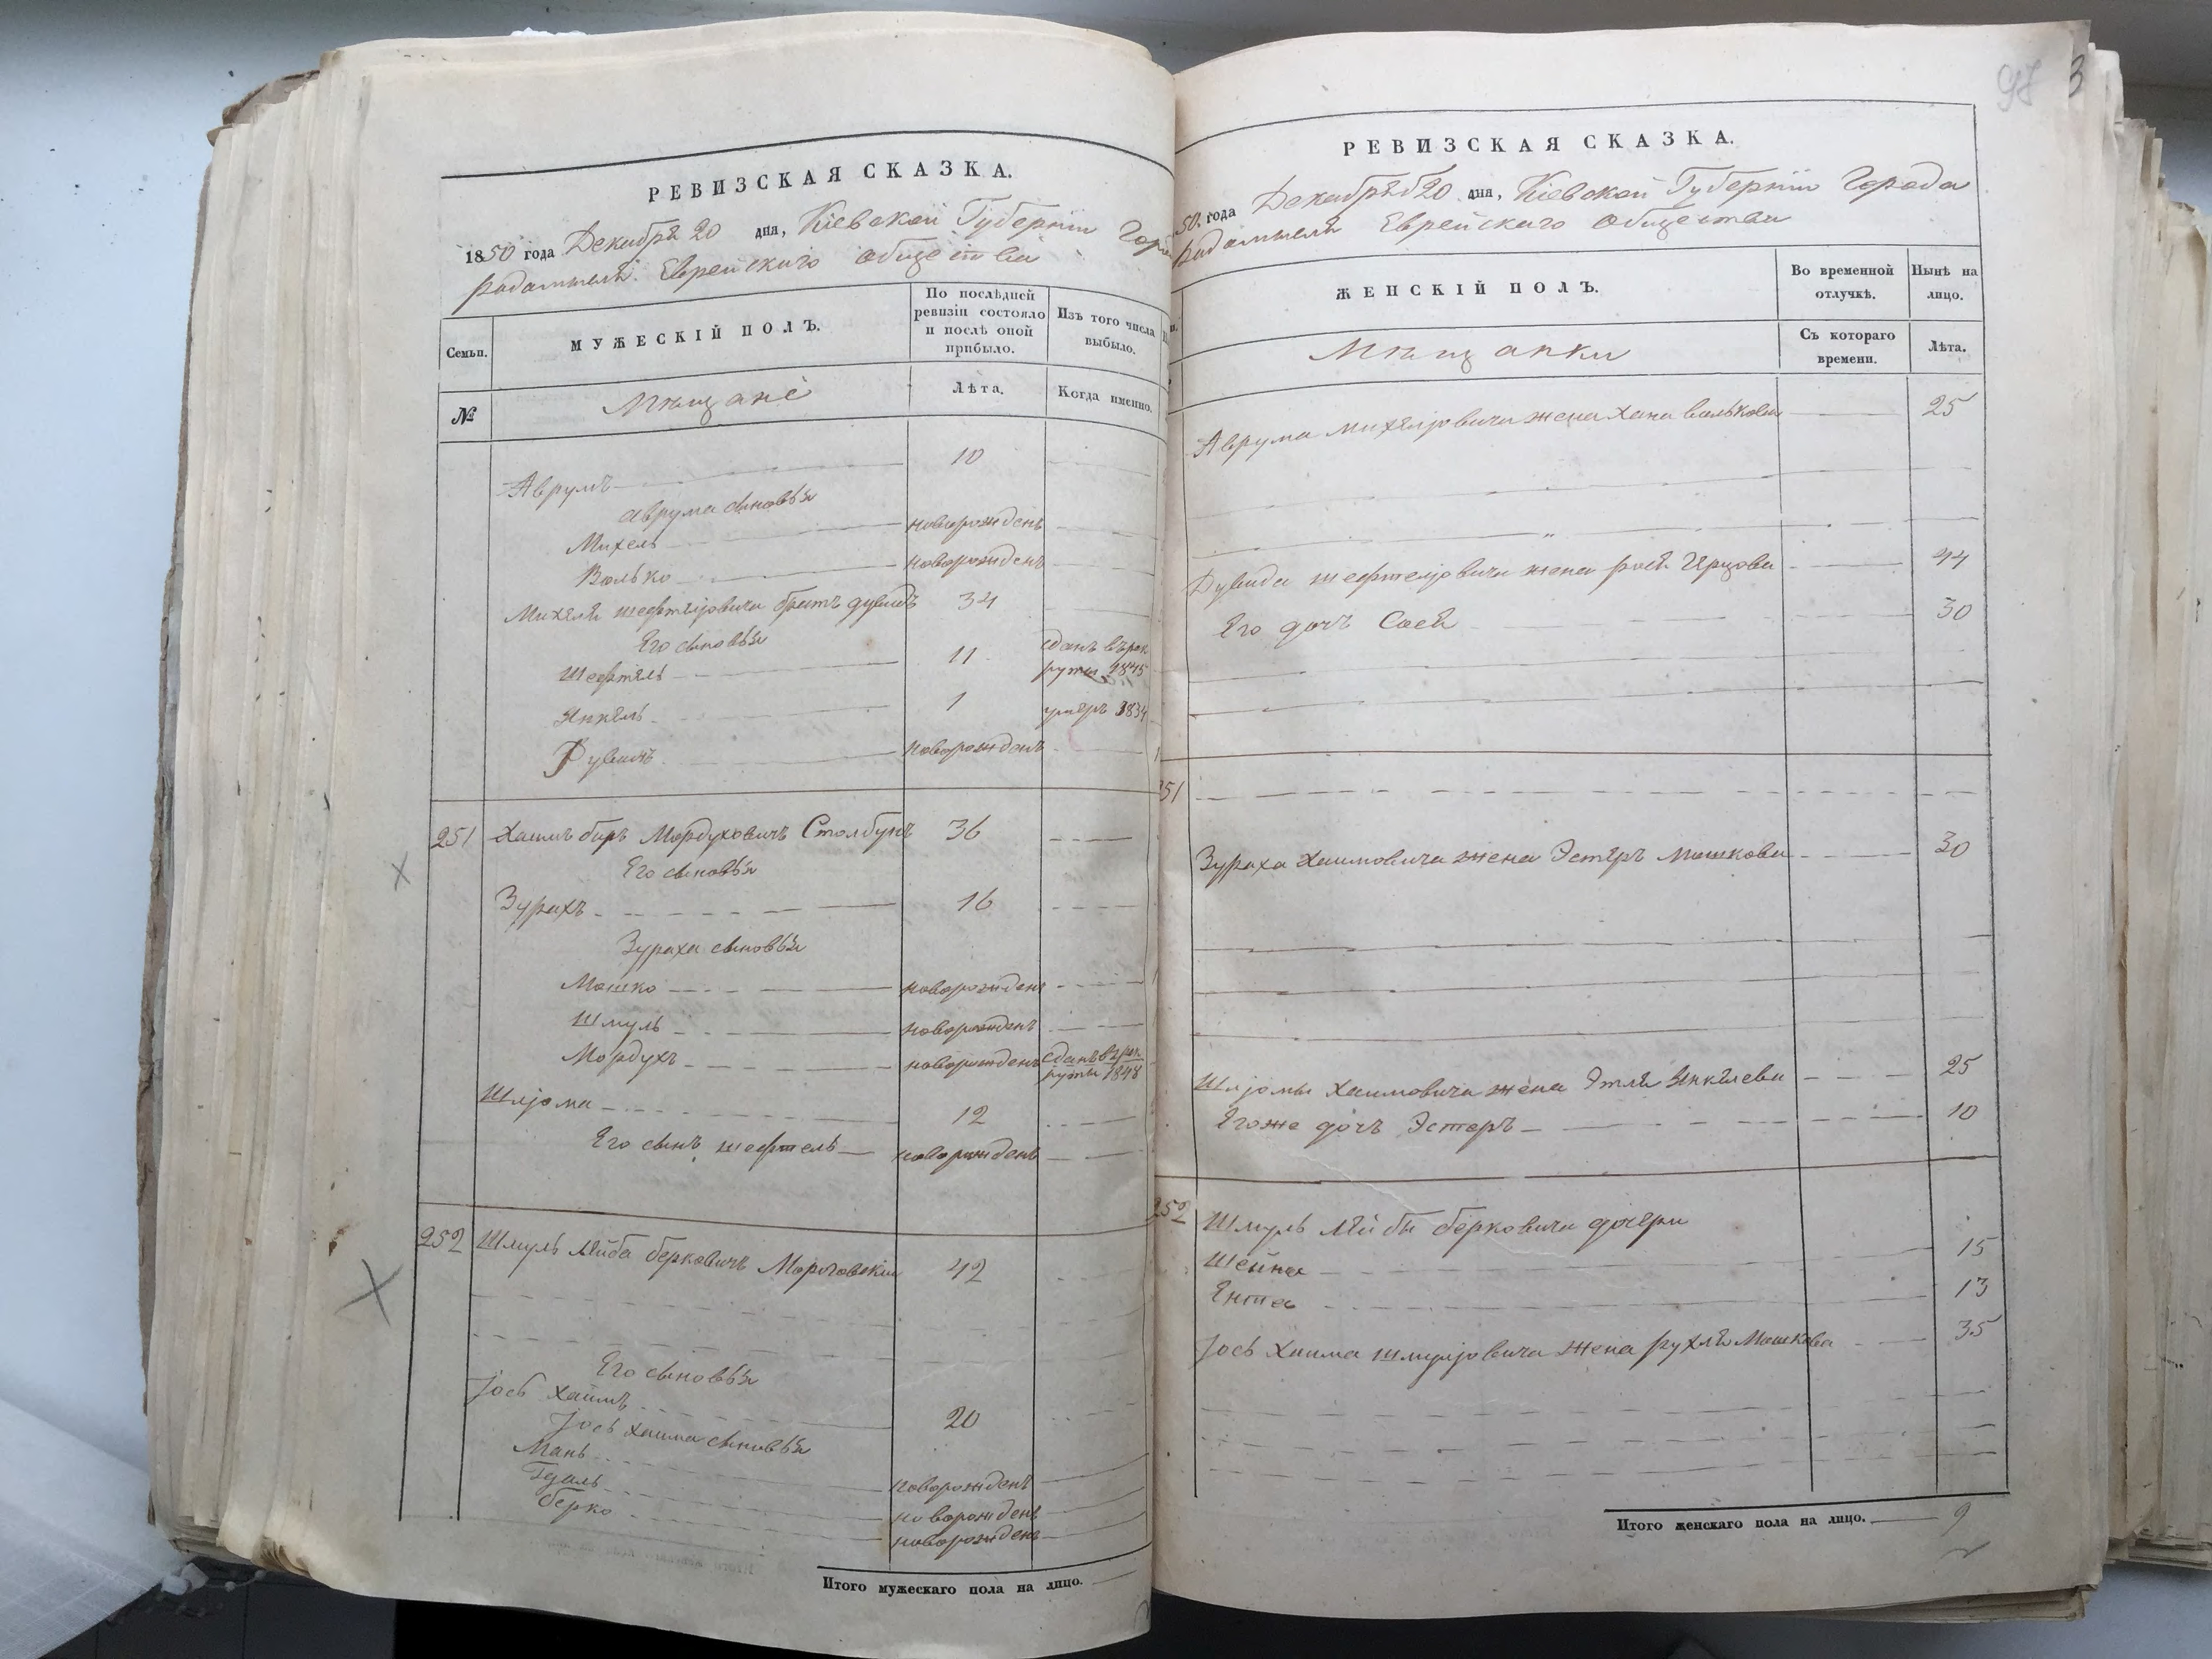 РЕВИЗСКАЯ СКАЗКА.
1850 года Декабря 20 дня, Кіевской Губерніи Горо
Радомысля Еврейскаго Общества
Семьи.
МУЖЕСКІЙ ПОЛЪ.
По послѣдней ревизіи состояло и послѣ оной прибыло.
Изъ того числа выбыло.
№
Мѣщане
Лѣта.
Когда именно.
Аврумъ 10
Аврума сыновья
Михель новорожденъ
Волько новорожденъ
Михеля Шефтеловича братъ Дувидъ 34
Его сыновья
Шефтель 11 сданъ въ рек
руты 1845
Янкель 1 умеръ 1834
Рувинъ новорожденъ
251 Хаимъ беръ Мордуховичъ Столбунъ 36
Его сыновья
Зурахъ 16
Зураха сыновья
Мошко новорожденъ
Шмуль новорожденъ
Мордухъ новорожденъ сданъ въ рек
руты 1848
Шлјома 12
Его сынъ Шефтель новорожденъ
252 Шмуль Лейба Берковичъ 42
Его сыновья
Јось Хаимъ 20
Јось Хаима сыновья
Мань новорожденъ
новорожденъ
Берко новорожденъ
Итого мужескаго пола на лицо.
97
РЕВИЗСКАЯ СКАЗКА.
50 года Декабря 20 дня, Кіевской Губерніи Города
Радомысля Еврейскаго Общества
ЖЕНСКІЙ ПОЛЪ.
Во временной отлучкѣ.
Нынѣ на лицо.
Мѣщанки
Съ котораго времени.
Лѣта.
Аврума Михелјовича жена Хана Волькова 25
Дувида Шефтелјовича жена Рося Герцова 44
Его дочь Сося 30
251
Зураха Хаимовича жена Эстеръ Мошкова 30
Шлјомы Хаимовича жена Этля Янкелева 25
Егоже дочь Эстеръ 10
252 Шмуль Лейбы Берковича дочери
Шейна 15
Ента 13
Јось Хаима Шмулјовича жена Рухля Мошкова 35
Итого женскаго пола на лицо. 9